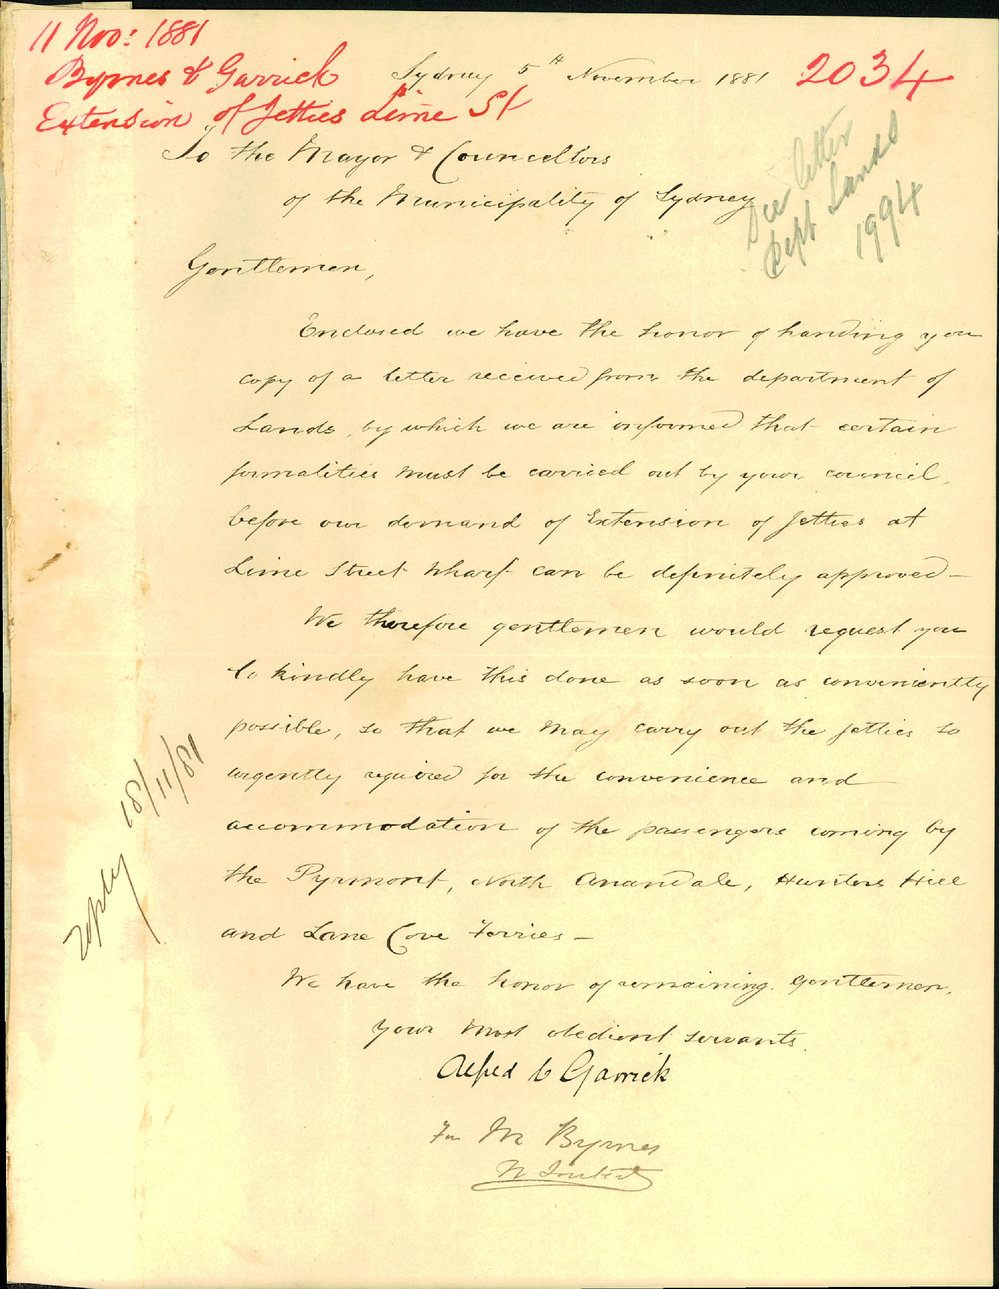 11 Nov: 1881
Byrnes & Garrick
Extension of Jetties Lime St
2034
Sydney 5th November 1881
See letter
Dept Lands
1994
To the Mayor & Councellors
of the Municipality of Sydney
Gentlemen,
Enclosed we have the honor of handing you
copy of a letter received from the department of
Lands, by which we are informed that certain
formalities must be carried out by your council,
before our demand of Extension of Jetties at
Lime Street Wharf can be definitely approved—
We therefore gentlemen would request you
to kindly have this done as soon as conveniently
possible, so that we may carry out the jetties so
urgently required for the convenience and
accommodation of the passengers coming by
the Pyrmont, North Anandale, Hunters Hill
and Lane Cove Ferries—
We have the honor of remaining. Gentlemen,
your most obedient servants.
Alfred C Garrick
For M Byrnes
N Joubert
reply 18/11/81